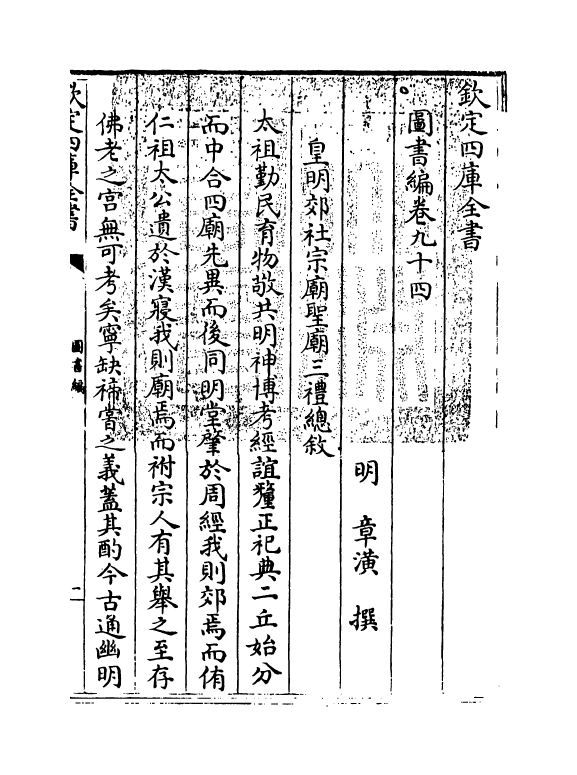 欽定四庫全書
圖書編卷九十四
明 章潢 撰
皇明郊社宗廟聖廟三禮總敘
太祖勤民育物敬共明神博考經誼釐正祀典二丘始分
而中合四廟先異而後同明堂肇於周經我則郊焉而侑
仁祖太公遺於漢寢我則廟焉而祔宗人有其舉之至存
佛老之宮無可考矣寧缺禘嘗之義蓋其酌今古通幽明
欽定四庫全書
圖書編
二